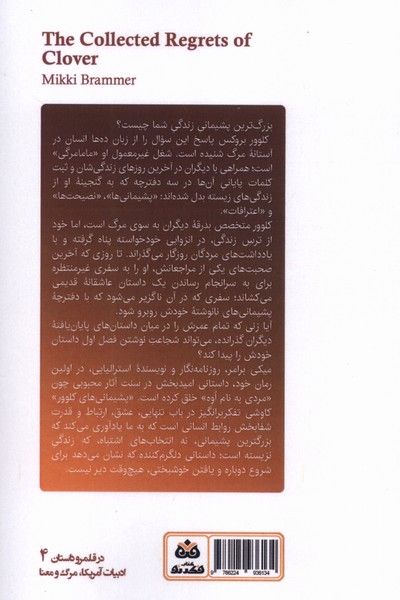 The Collected Regrets of
Clover
Mikki Brammer
بزرگ‌ترین پشیمانی زندگی شما چیست؟
کلوور بروکس پاسخ این سؤال را از زبان ده‌ها انسان در
آستانهٔ مرگ شنیده است. شغل غیرمعمول او «مامامرگی»
است؛ همراهی با دیگران در آخرین روزهای زندگی‌شان و ثبت
کلمات پایانی آن‌ها در سه دفترچه که به گنجینهٔ او از
زندگی‌های زیسته بدل شده‌اند: «پشیمانی‌ها»، «نصیحت‌ها»
و «اعترافات».
کلوور متخصص بدرقهٔ دیگران به سوی مرگ است، اما خود
از ترس زندگی، در انزوایی خودخواسته پناه گرفته و با
یادداشت‌های مردگان روزگار می‌گذراند. تا روزی که آخرین
صحبت‌های یکی از مراجعانش، او را به سفری غیرمنتظره
برای به سرانجام رساندن یک داستان عاشقانهٔ قدیمی
می‌کشاند؛ سفری که در آن ناگزیر می‌شود که با دفترچهٔ
پشیمانی‌های نانوشتهٔ خودش روبرو شود.
آیا زنی که تمام عمرش را در میان داستان‌های پایان‌یافتهٔ
دیگران گذرانده، می‌تواند شجاعت نوشتن فصل اول داستان
خودش را پیدا کند؟
میکی برامر، روزنامه‌نگار و نویسندهٔ استرالیایی، در اولین
رمان خود، داستانی امیدبخش در سنت آثار محبوبی چون
«مردی به نام اوه» خلق کرده است. «پشیمانی‌های کلوور»
کاوشی تفکربرانگیز در باب تنهایی، عشق، ارتباط و قدرت
شفابخش روابط انسانی است که به ما یادآوری می‌کند که
بزرگترین پشیمانی، نه انتخاب‌های اشتباه، که زندگی
نزیسته است؛ داستانی دلگرم‌کننده که نشان می‌دهد برای
شروع دوباره و یافتن خوشبختی، هیچ‌وقت دیر نیست.
در قلمرو داستان ۴
ادبیات آمریکا، مرگ و معنا
کتاب